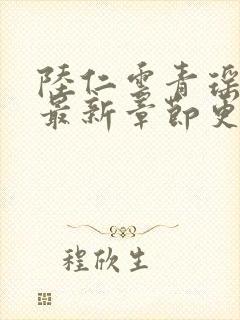 陸仁雲青瑶
最新章節更
程欣生